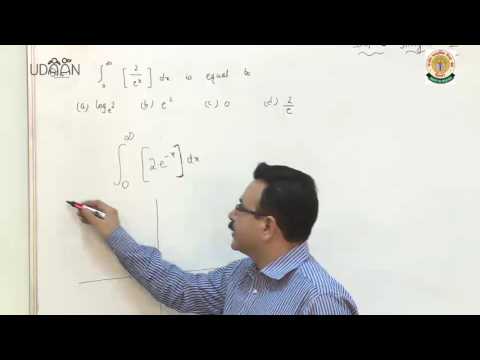 UDAAN
∫₀^∞ [2/eˣ] dx is equal to
(a) logₑ2 (b) e² (c) 0 (d) 2/e
∫₀^∞ [2·e⁻ˣ] dx